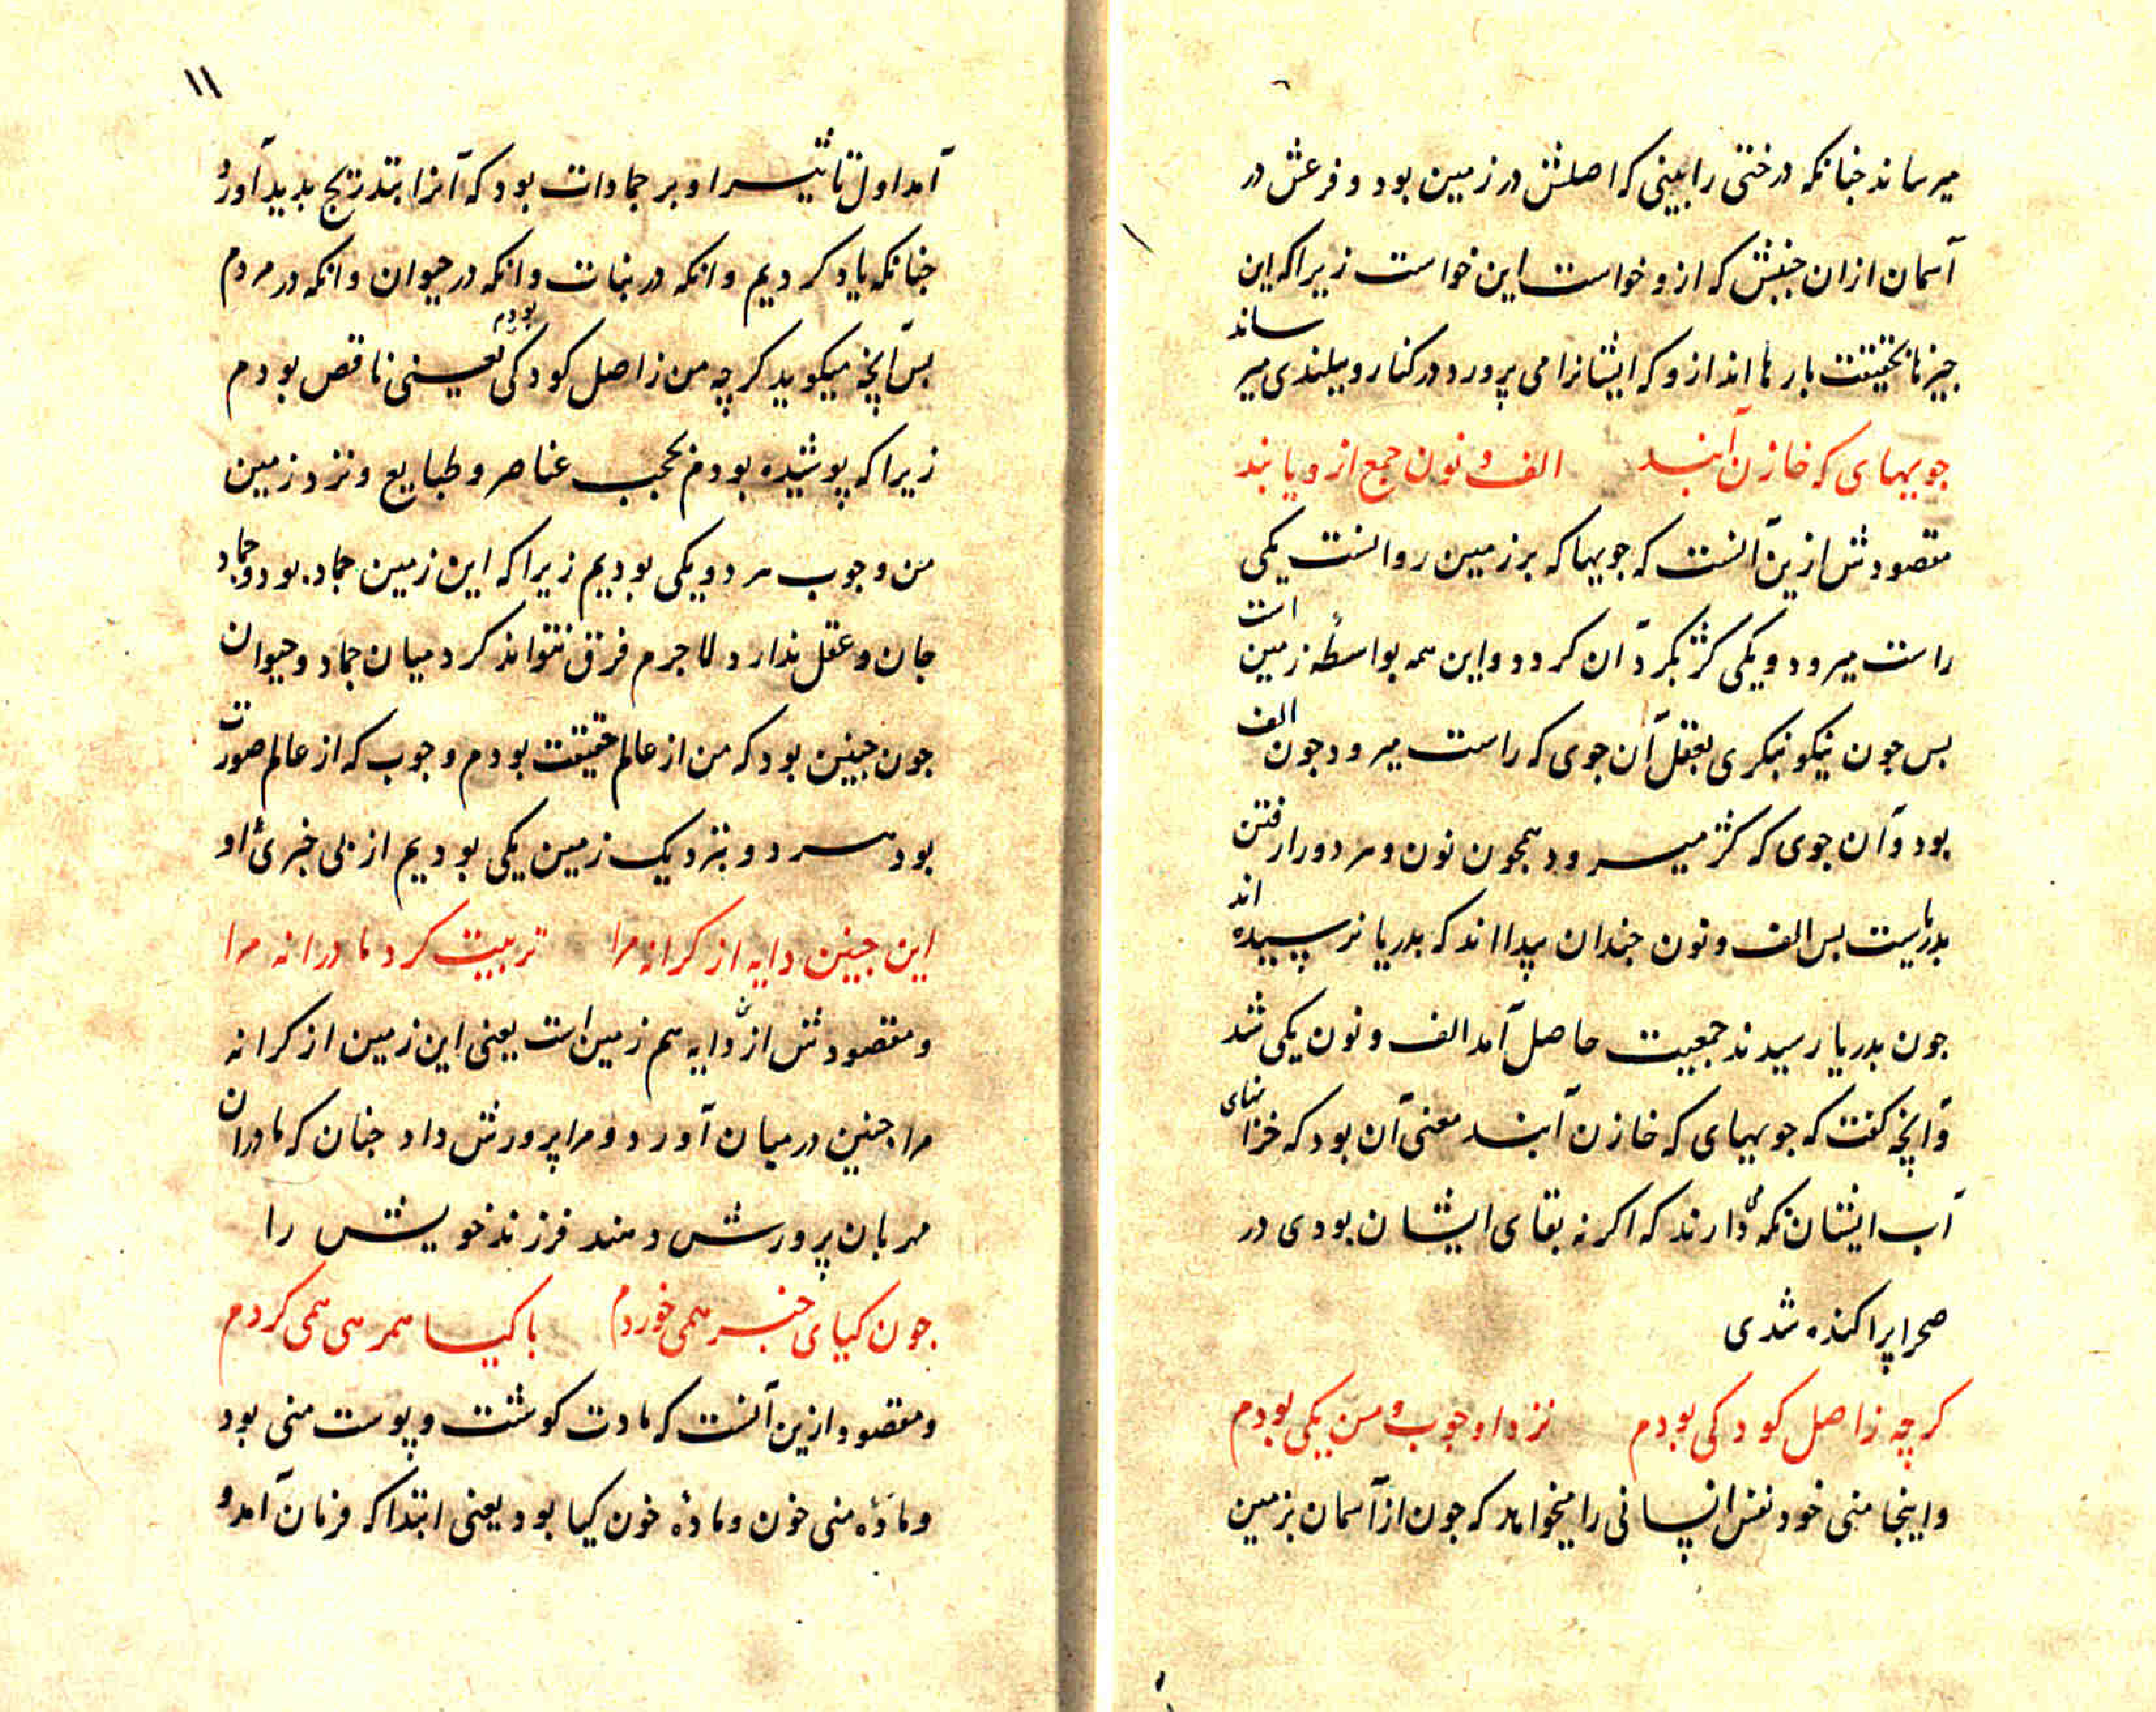 میرساند جنانکه درختی را بینی که اصلش در زمین بود و فرعش در
آسمان ازان جنبش که ازو خواست این خواست زیرا که این
جیزها بحقیقت بارها اند ازو که ایشانرا می پرورد در کنار و ببلندی میرساند
جویهای که خازن آبند الف و نون جمع ازو یابند
مقصودش ازین آنست که جویها که بر زمین روانست یکی
راست میرود و یکی کژ بکرد آن کردد و این همه بواسطۀ زمین است
بس جون نیکو بنکری بعقل آن جوی که راست میرود جون الف
بود و آن جوی که کژ میرود همجون نون و هر دو را رفتن
بدریاست بس الف و نون جندان پیدا اند که بدریا نرسیده اند
جون بدریا رسیدند جمعیت حاصل آمد الف و نون یکی شد
و آنچه کفت که جویهای که خازن آبند معنی آن بود که خزانهای
آب ایشان نکه می دارند که اکر نه بقای ایشان بودی در
صحرا پراکنده شدی
کرچه ز اصل کودکی بودم نزد او جوب و من یکی بودم
و اینجا منی خود نفس انسانی را میخواهد که جون از آسمان بزمین
۱۱
آمد اول تاثیر او بر جمادات بود که آنرا بتدریج بدید آورد
جنانکه یاد کردیم و انکه در نبات و انکه در حیوان و انکه در مردم
بس آنچه میکوید کرچه من ز اصل کودکی بودم یعنی ناقص بودم
زیرا که پوشیده بودم بحجب عناصر و طبایع و نزد زمین
من و جوب هر دو یکی بودیم زیرا که این زمین جماد بود و جماد
جان و عقل ندارد لاجرم فرق نتواند کرد میان جماد و حیوان
جون جنین بود که من از عالم حقیقت بودم و جوب که از عالم صورت
بود هر دو بنزدیک زمین یکی بودیم از بی خبرئ او
این جنین دایه از کرانه مرا تربیت کرد مادرانه مرا
و مقصودش ازین دایه هم زمین است یعنی این زمین از کرانه
مرا جنین در میان آورد و مرا پرورش داد جنان که مادران
مهربان پرورش دهند فرزند خویش را
جون کیای خبر همی خوردم با کیا همرهی همی کردم
و مقصود ازین آنست که مادت کوشت و پوست منی بود
و مادۀ منی خون و مادۀ خون کیا بود یعنی ابتدا که فرمان آمد و